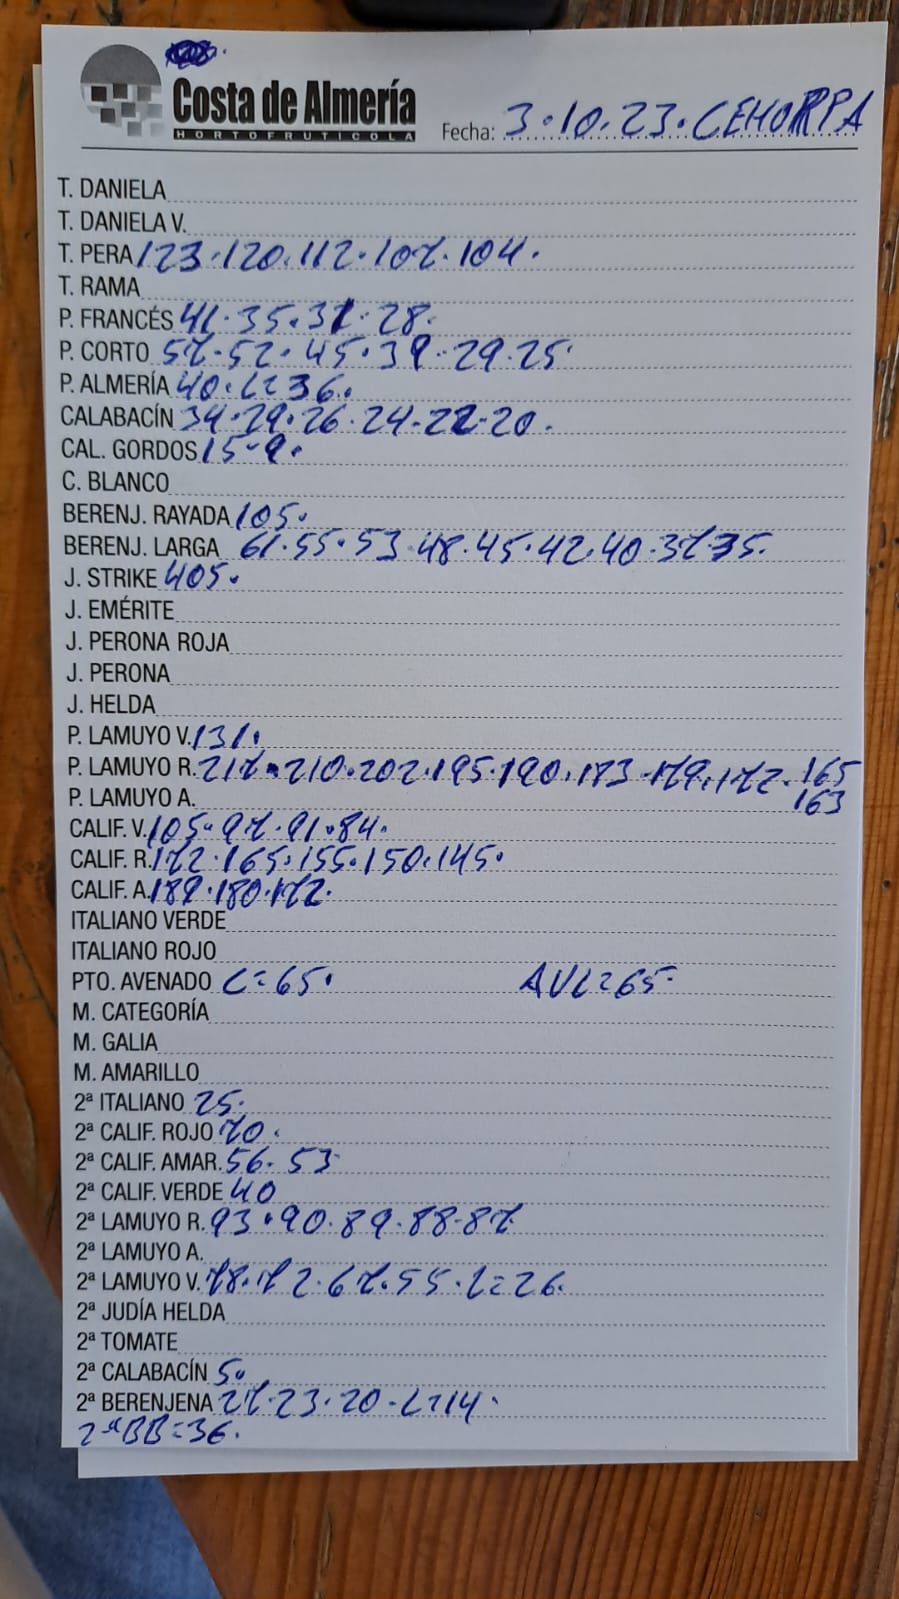 Costa de Almería
HORTOFRUTICOLA
Fecha: 3.10.23. CEHORPA
T. DANIELA
T. DANIELA V.
T. PERA 123.120.112.107.104.
T. RAMA
P. FRANCÉS 41.35.31.28.
P. CORTO 57.52.45.39.29.25.
P. ALMERÍA 40.L=36.
CALABACÍN 34.29.26.24.22.20.
CAL. GORDOS 15-9.
C. BLANCO
BERENJ. RAYADA 105.
BERENJ. LARGA 61.55.53.48.45.42.40.37.35.
J. STRIKE 405.
J. EMÉRITE
J. PERONA ROJA
J. PERONA
J. HELDA
P. LAMUYO V. 131.
P. LAMUYO R. 217.210.202.195.190.183.179.172.165
P. LAMUYO A. 163
CALIF. V. 105.97.91.84.
CALIF. R. 172.165.155.150.145.
CALIF. A. 180.172.
ITALIANO VERDE
ITALIANO ROJO
PTO. AVENADO L=65. AVL=65.
M. CATEGORÍA
M. GALIA
M. AMARILLO
2ª ITALIANO 25.
2ª CALIF. ROJO 70.
2ª CALIF. AMAR. 56.53
2ª CALIF. VERDE 40
2ª LAMUYO R. 93.90.89.88.87
2ª LAMUYO A.
2ª LAMUYO V. 78.72.67.55.L=26.
2ª JUDÍA HELDA
2ª TOMATE
2ª CALABACÍN 5.
2ª BERENJENA 27.23.20.L=14.
2ªBB=36.